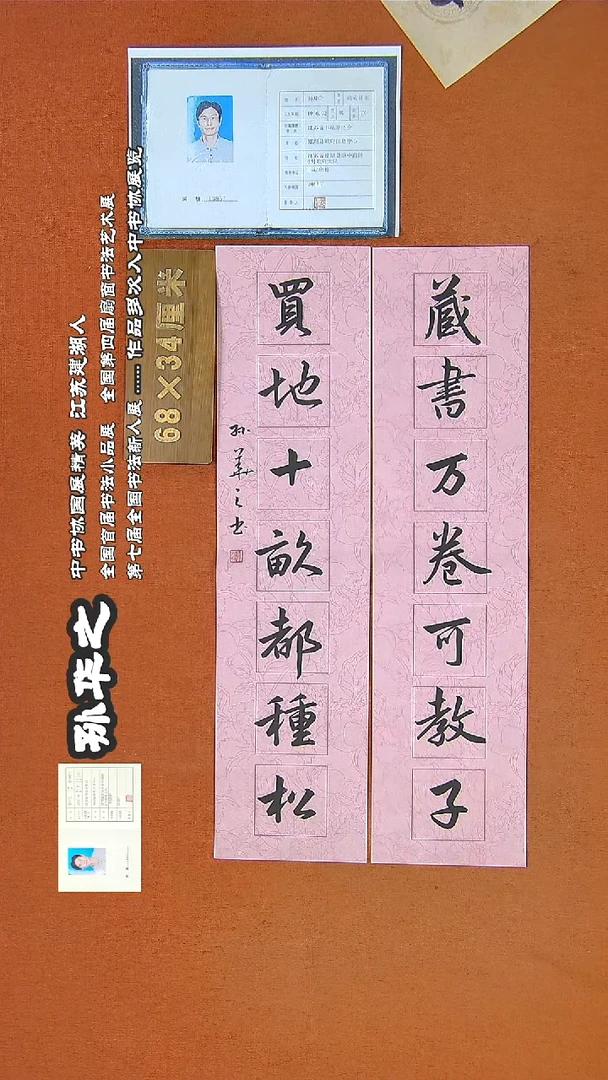 藏書万卷可教子
買地十畝都種松
孙華之书
68×34厘米
孙华之
中书协国展精英 江苏建湖人
全国首届书法小品展 全国第四届扇面书法艺术展
第七届全国书法新人展……作品多次入中书协展览